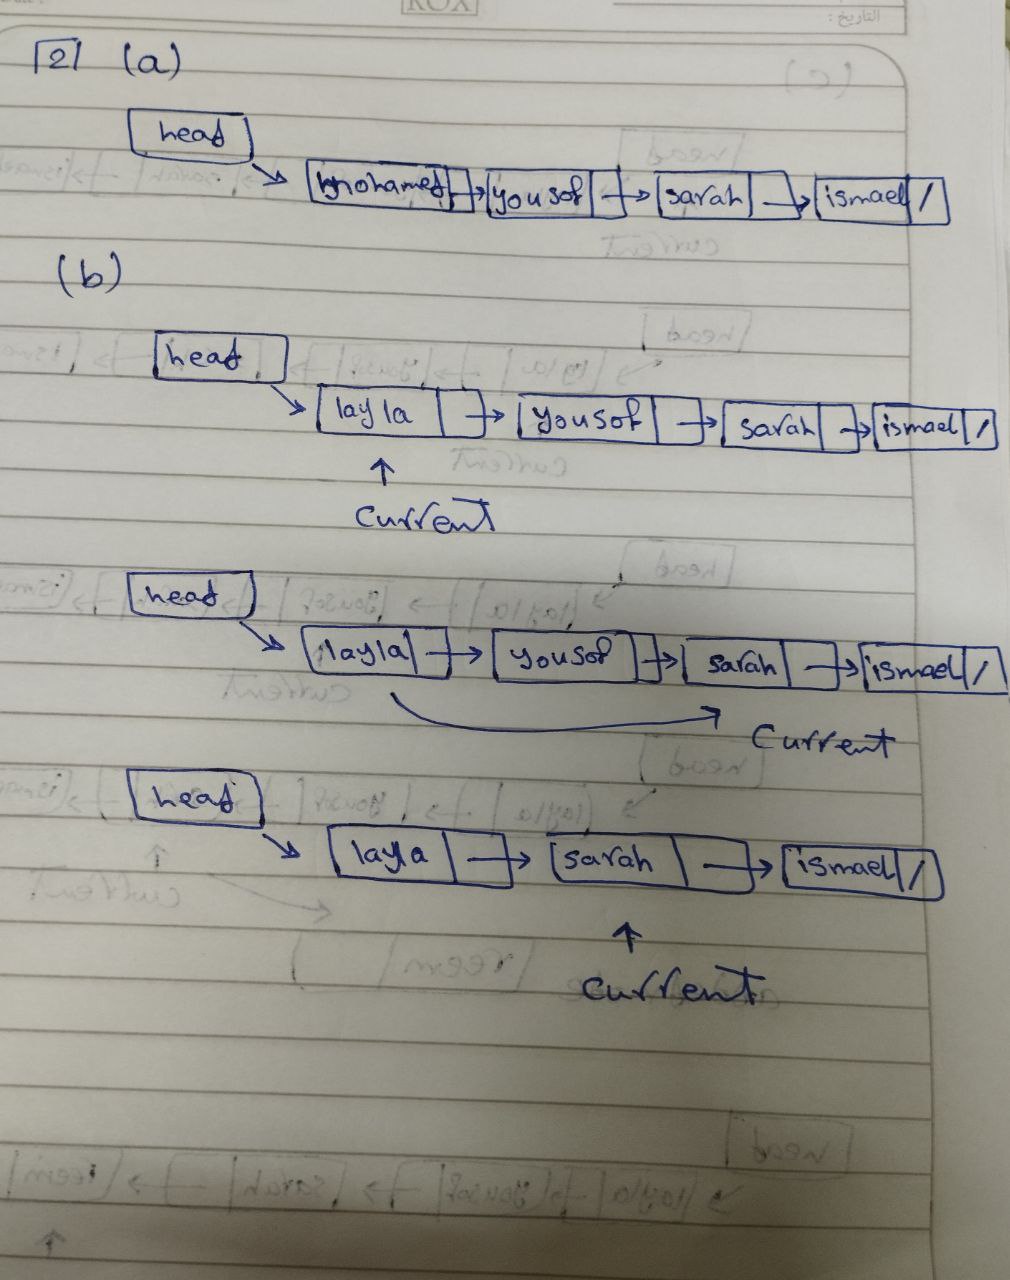 ROX
التاريخ:
2 (a)
head
mohamed yousof sarah ismael /
(b)
head
layla yousof sarah ismael /
current
head
layla yousof sarah ismael /
current
head
layla sarah ismael /
current